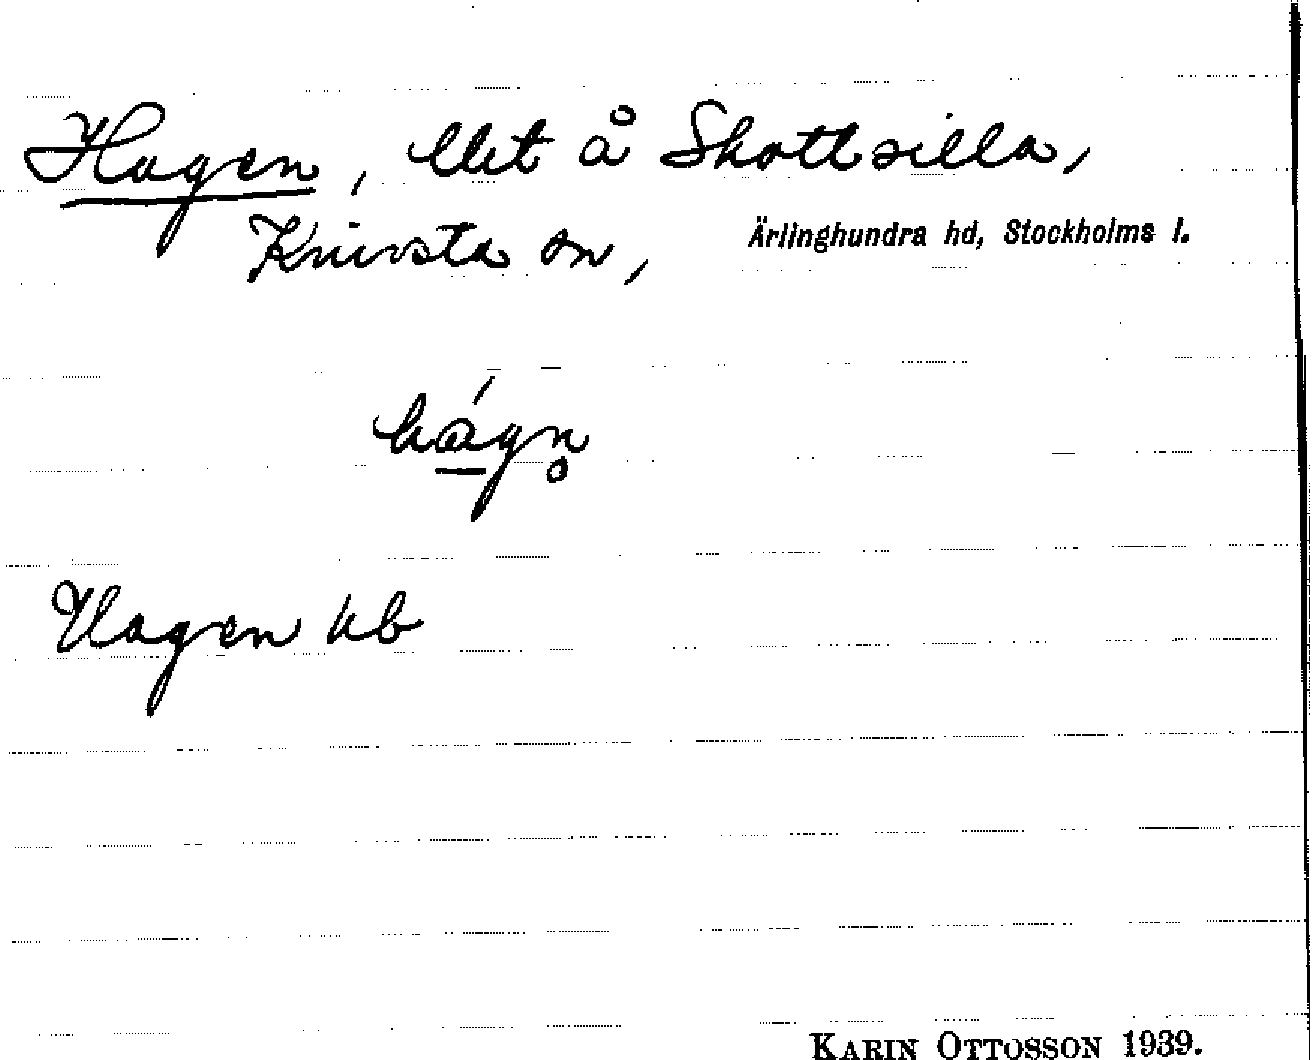 Hagen, llet å Skottsilla,
Knivsta sn, Ärlinghundra hd, Stockholms l.
hágn̥
Hagen kb
KARIN OTTOSSON 1939.